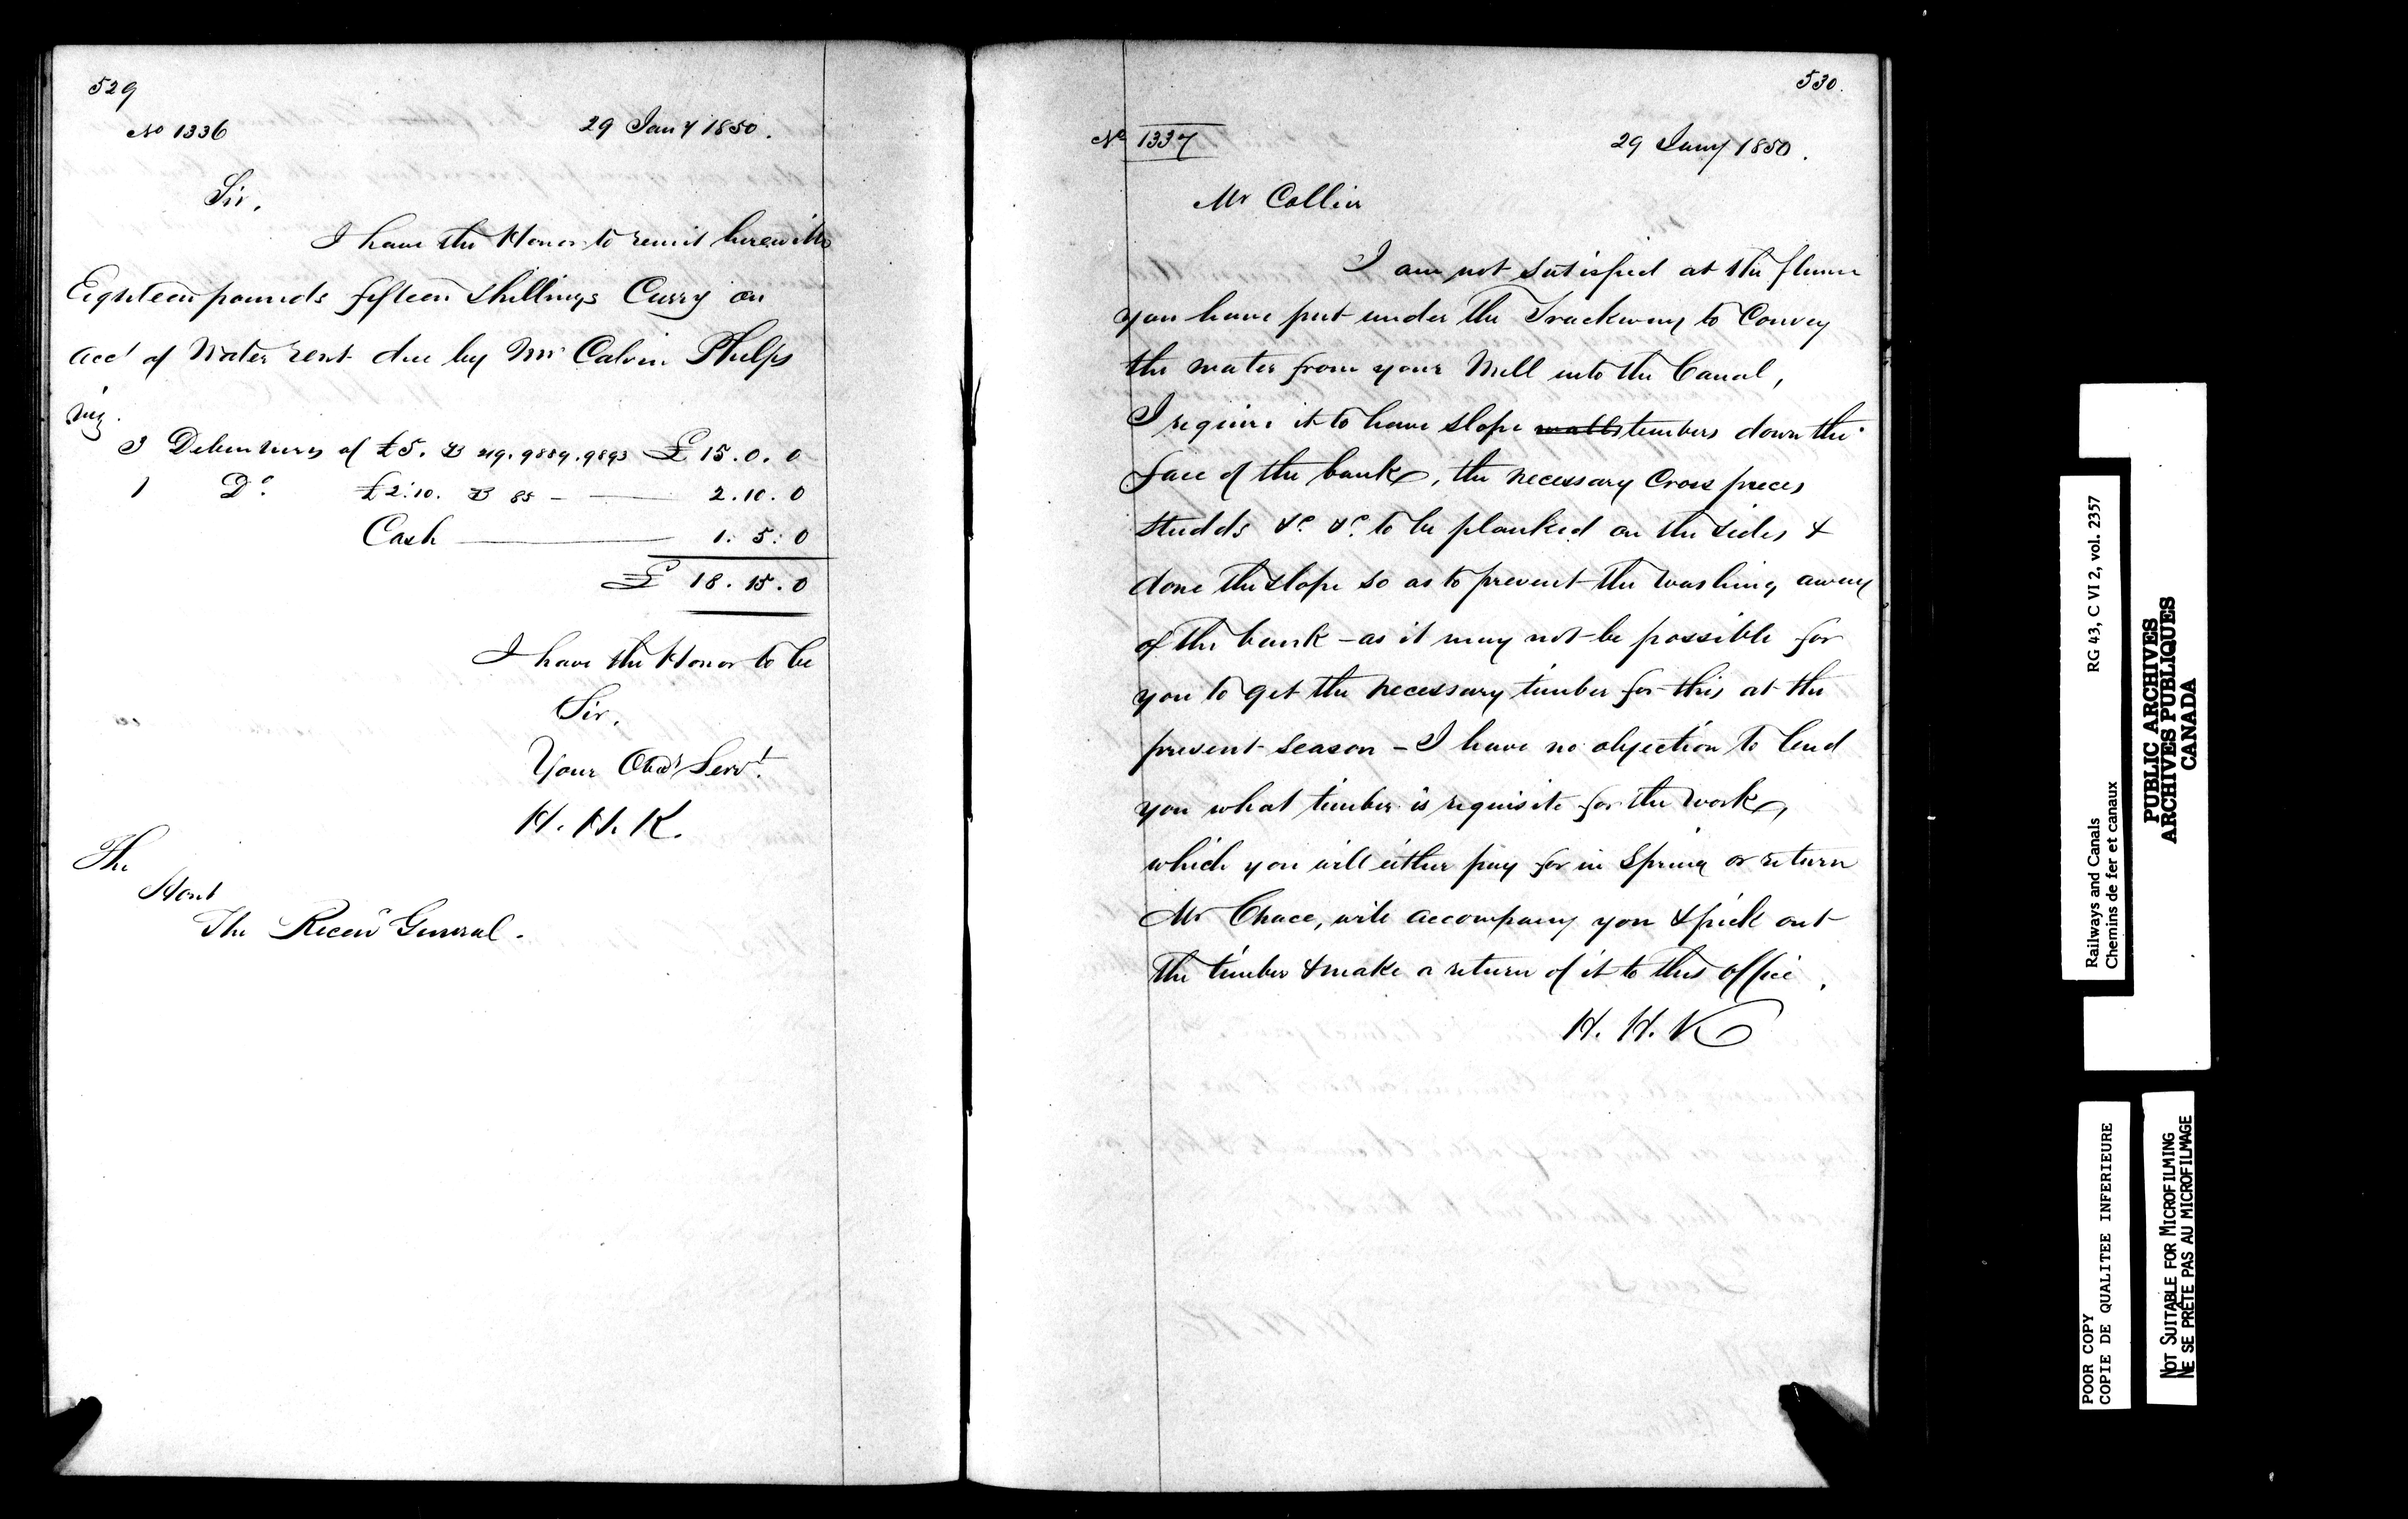 529
No 1336 29 Jany 1850.
Sir,
I have the Honor to remit herewith
Eighteen pounds fifteen shillings Curry on
acct of Water rent due by Mr Calvin Phelps
viz.
3 Debentures of £5. B 219. 9889. 9893 £ 15.0.0
1 Do. £2.10. B 85 - 2.10.0
Cash 1:5:0
£ 18.15.0
I have the Honor to be
Sir,
Your Obedt Servt.
H. H. K.
The
Honl
The Receivr General.
530.
No 1337 29 Jany 1850.
Mr Collier
I am not satisfied at the flume
you have put under the Trackway to Convey
the water from your Mill into the Canal,
I require it to have slope walls timbers down the
face of the bank, the necessary Cross pieces
Studds &c &c to be planked on the sides &
done the slope so as to prevent the washing away
of the bank - as it may not be possible for
you to get the necessary timber for this at the
present season - I have no objection to lend
you what timber is requisite for the work,
which you will either pay for in Spring or return
Mr Chace, will accompany you & pick out
the timber & make a return of it to this office.
H. H. K
Railways and Canals RG 43, C VI 2, vol. 2357
Chemins de fer et canaux
PUBLIC ARCHIVES
ARCHIVES PUBLIQUES
CANADA
POOR COPY
COPIE DE QUALITEE INFERIEURE
NOT SUITABLE FOR MICROFILMING
NE SE PRÊTE PAS AU MICROFILMAGE